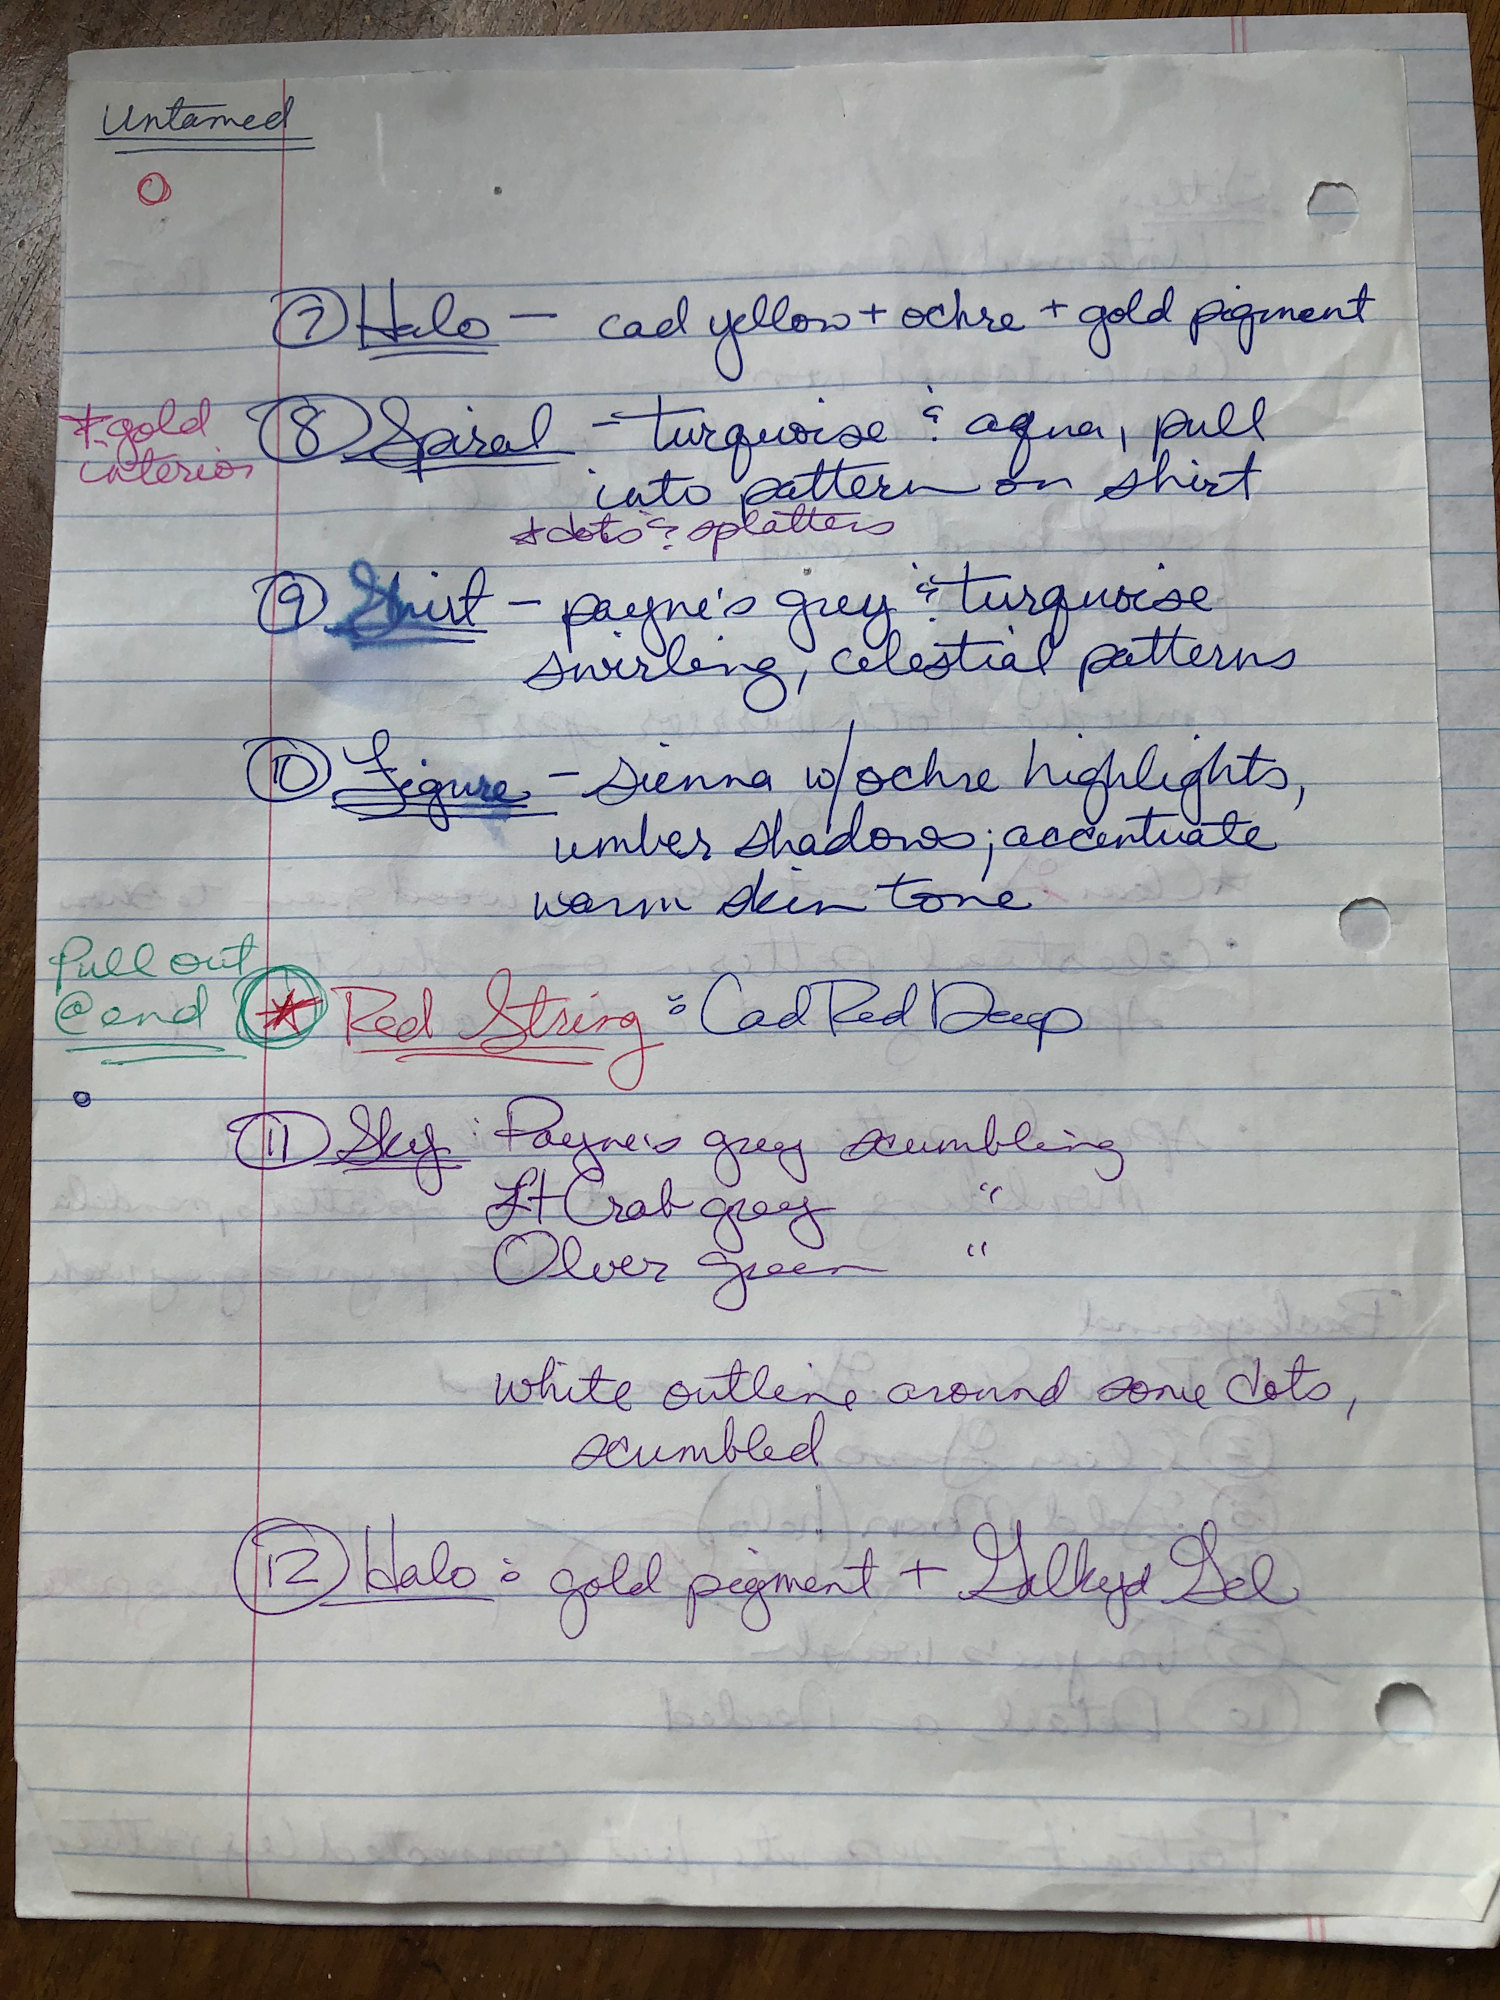 Untamed
7 Halo — cad yellow + ochre + gold pigment
* gold
interior
8 Spiral - turquoise & aqua, pull
into pattern on shirt
* dots & splatters
9 Shirt - payne's grey & turquoise
swirling, celestial patterns
10 Figure - sienna w/ochre highlights,
umber shadows; accentuate
warm skin tone
Pull out
@ end
* Red String : Cad Red Deep
11 Sky : Payne's grey scumbling
Lt Crab grey "
Olver green "
white outline around some dots,
scumbled
12 Halo : gold pigment + Galkyd Gel